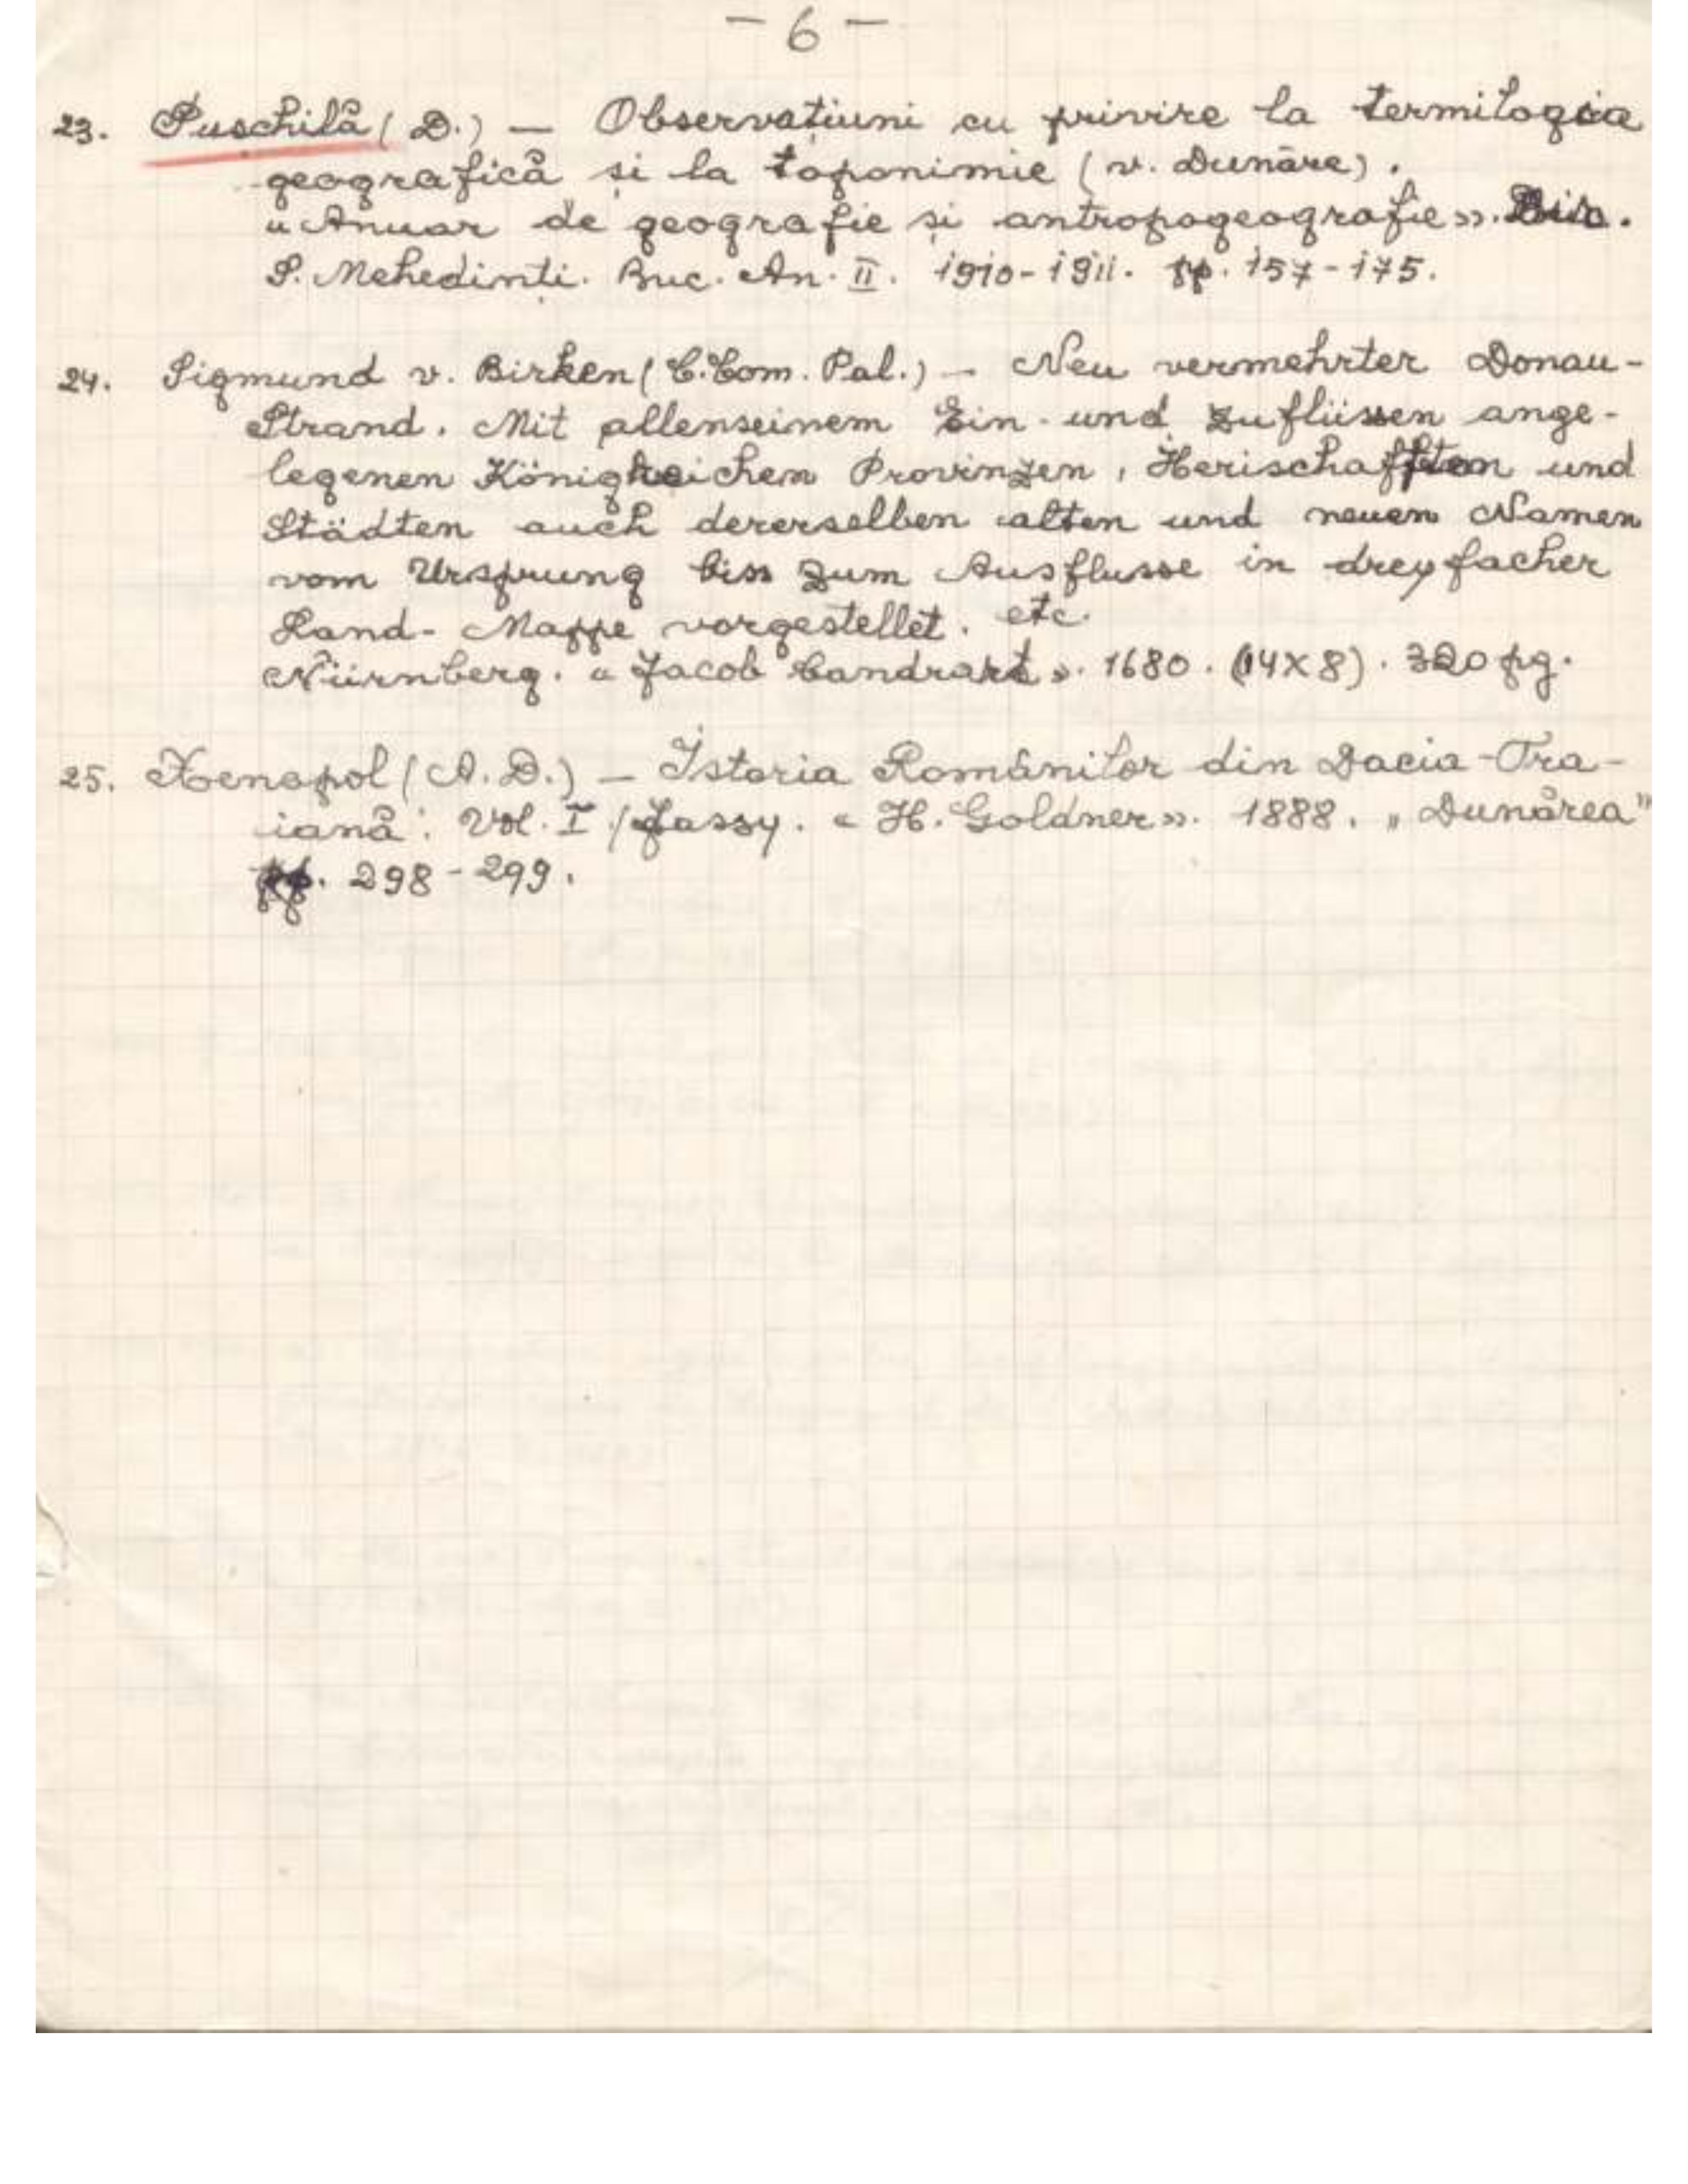 - 6 -
23. Puschilă (D.) — Observațiuni cu privire la termilogia
geografică și la toponimie (v. Dunăre).
«Anuar de geografie și antropogeografie». Dir.
S. Mehedinți. Buc. An. II. 1910-1911. pp. 157-175.
24. Sigmund v. Birken (C. Com. Pal.) — Neu vermehrter Donau-
Strand. Mit allenseinem Ein- und Zuflüssen ange-
legenen Königreichen Provinzen, Herischafften und
Städten auch dererselben alten und neuen Namen
vom Ursprung biss zum Ausflusse in dreyfacher
Land-Mappe vorgestellet. etc.
Nürnberg. «Jacob Sandrart». 1680. (14X8). 320 pg.
25. Xenopol (A. D.) — Istoria Românilor din Dacia-Tra-
iană. Vol. I. Jassy. «H. Goldner». 1888. „Dunărea"
pp. 298-299.